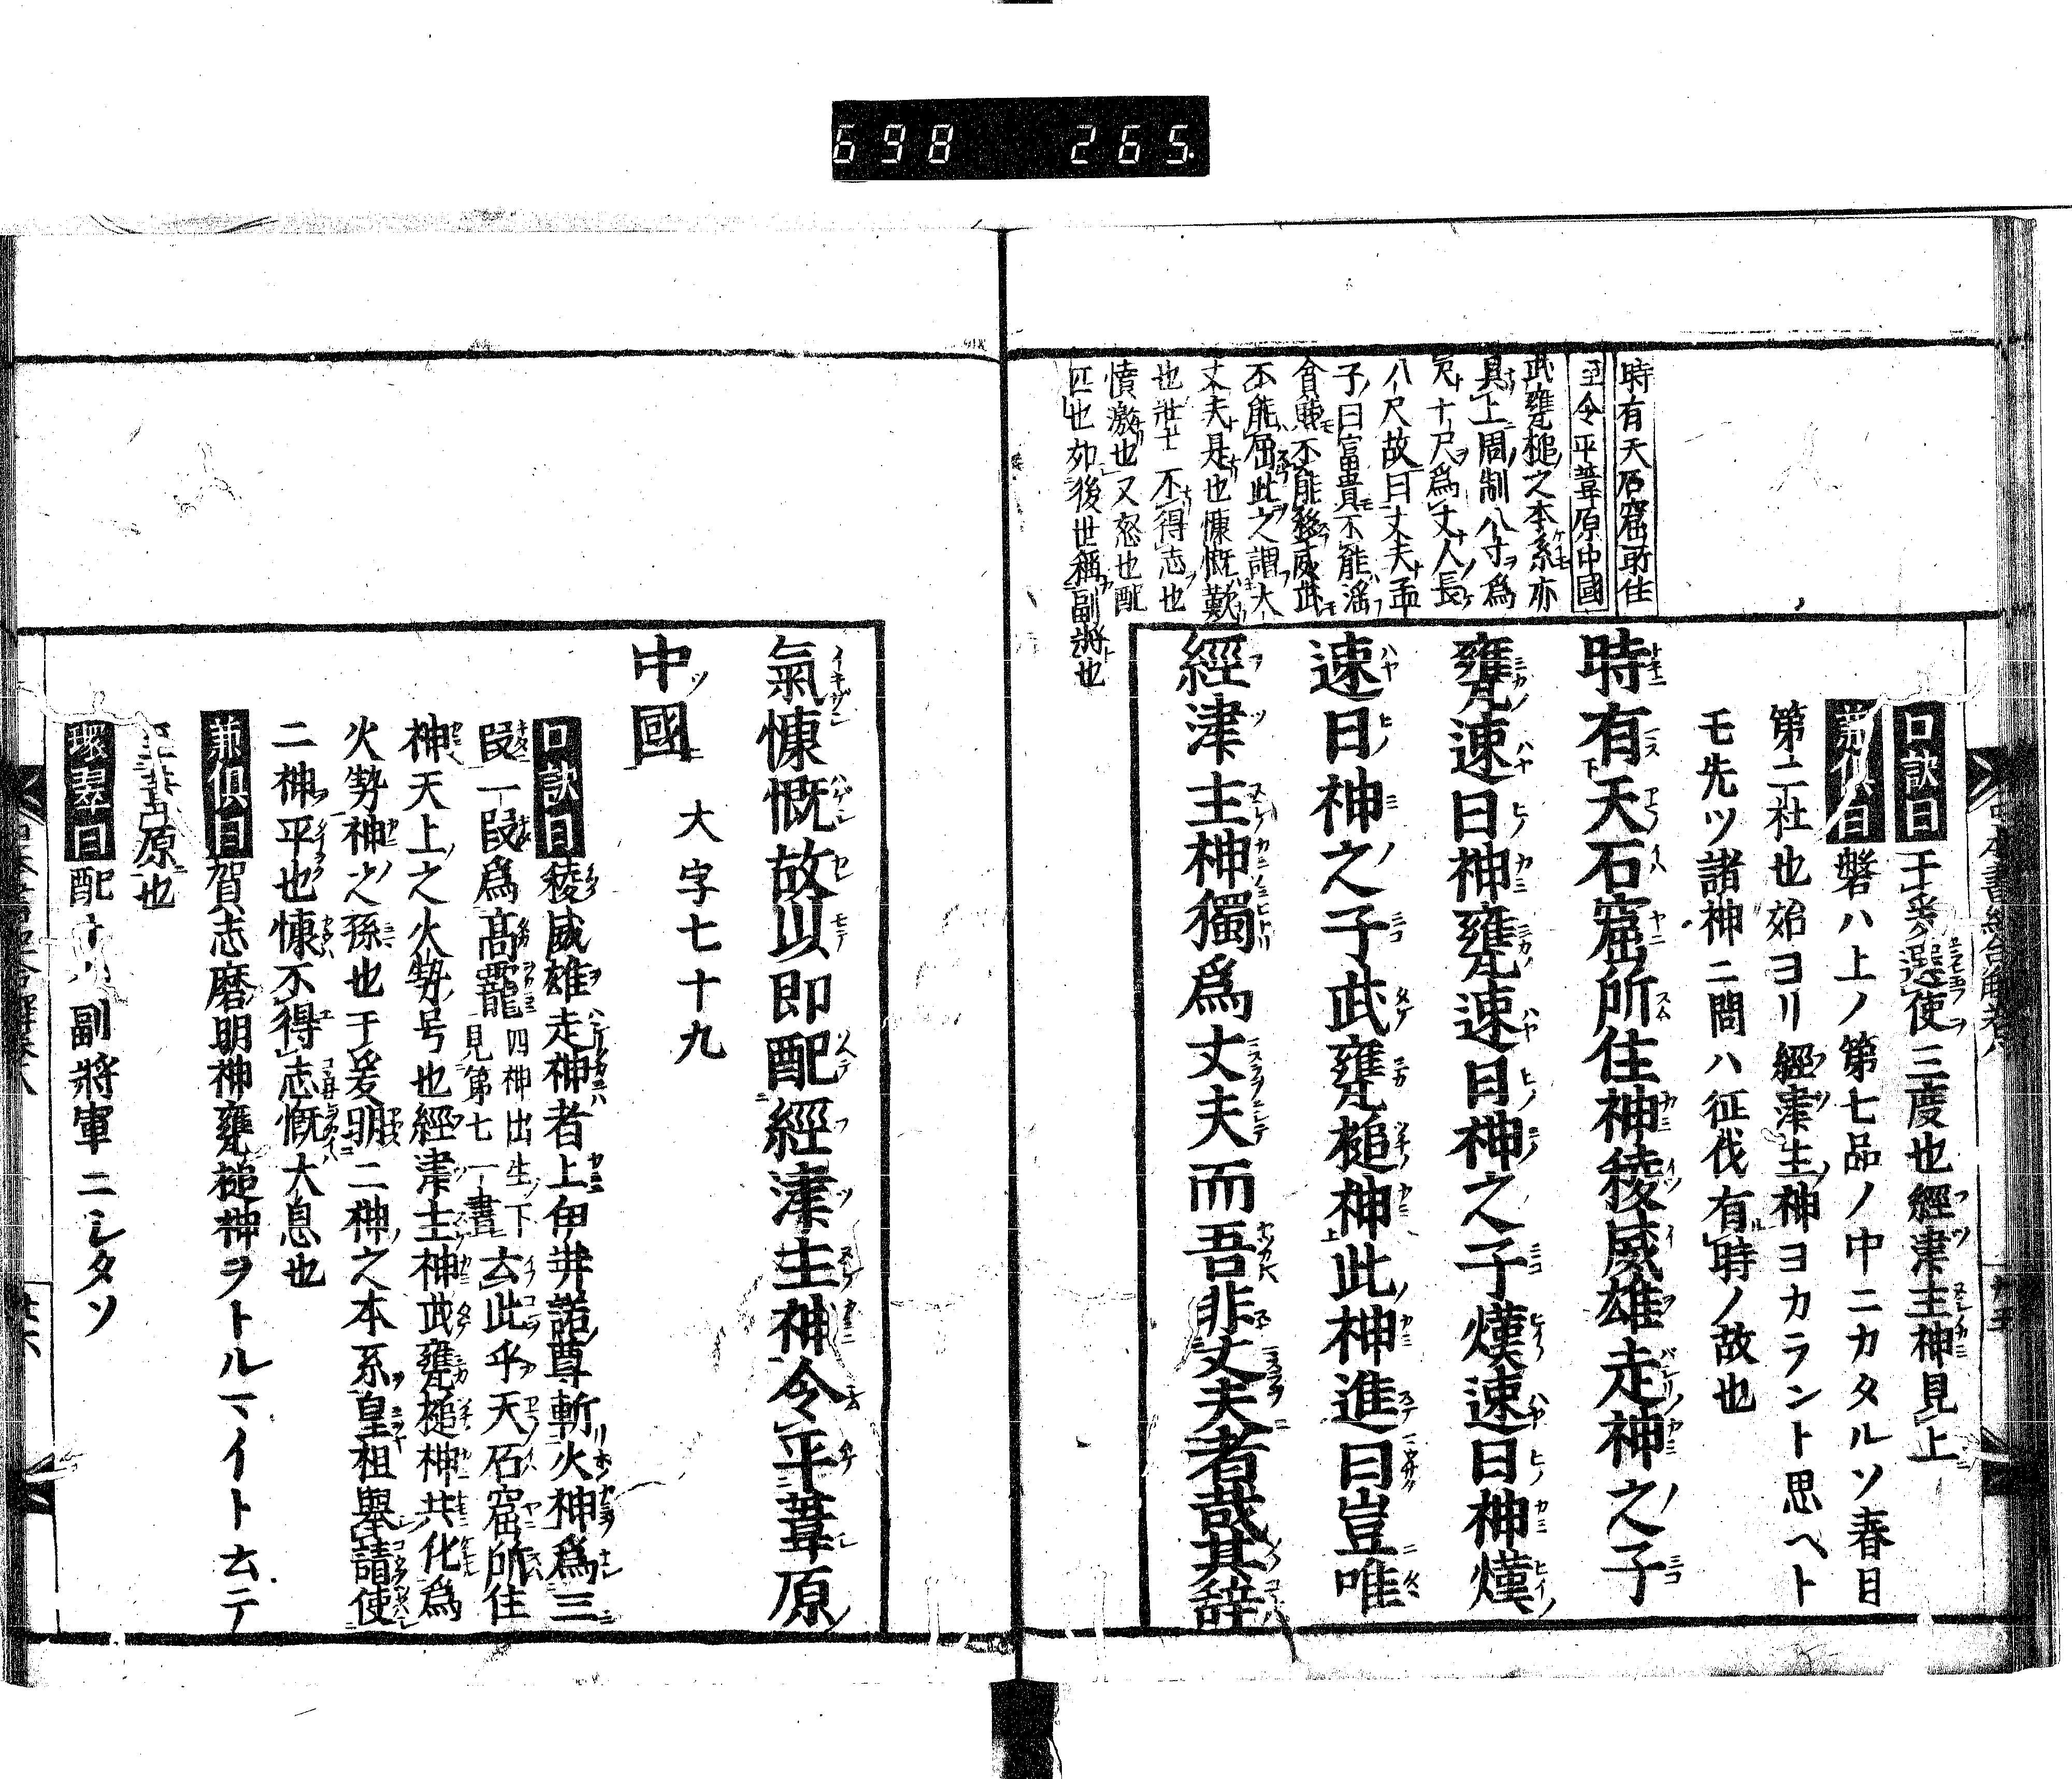 698 265
時有天石窟所住
至令平葦原中國
武甕槌之本系亦
具上周制八寸爲
尺十尺爲丈人長
八尺故曰丈夫孟
子曰富貴不能滛
貧賤不能移威武
不能屈此之謂大
丈夫是也慷慨歎
也壯士不得志也
憤激也又怒也配
匹也如後世稱副將也
口訣曰 于爰選使三度也經津主神見上
兼俱曰 磐ハ上ノ第七品ノ中ニカタルソ春日
第二社也始ヨリ經津主神ヨカラント思ヘト
モ先ツ諸神ニ問ハ征伐有時ノ故也
時有天石窟所住神稜威雄走神之子
甕速日神甕速日神之子熯速日神熯
速日神之子武甕槌神此神進曰豈唯
經津主神獨爲丈夫而吾非丈夫者哉其辞
氣慷慨故以即配經津主神令平葦原
中國
大字七十九
口訣曰 稜威雄走神者上伊弉諾尊斬火神爲三
段一段爲高龗四神出生下見第七一書云此乎天石窟所住
神天上之火勢号也經津主神武甕槌神共化爲
火勢神之孫也于爰明二神之本系皇祖與請使
二神平也慷不得志慨大息也
兼俱曰 賀志磨明神甕槌神ヲトルマイト云テ
原也
環翠曰 配 副將軍ニシタソ